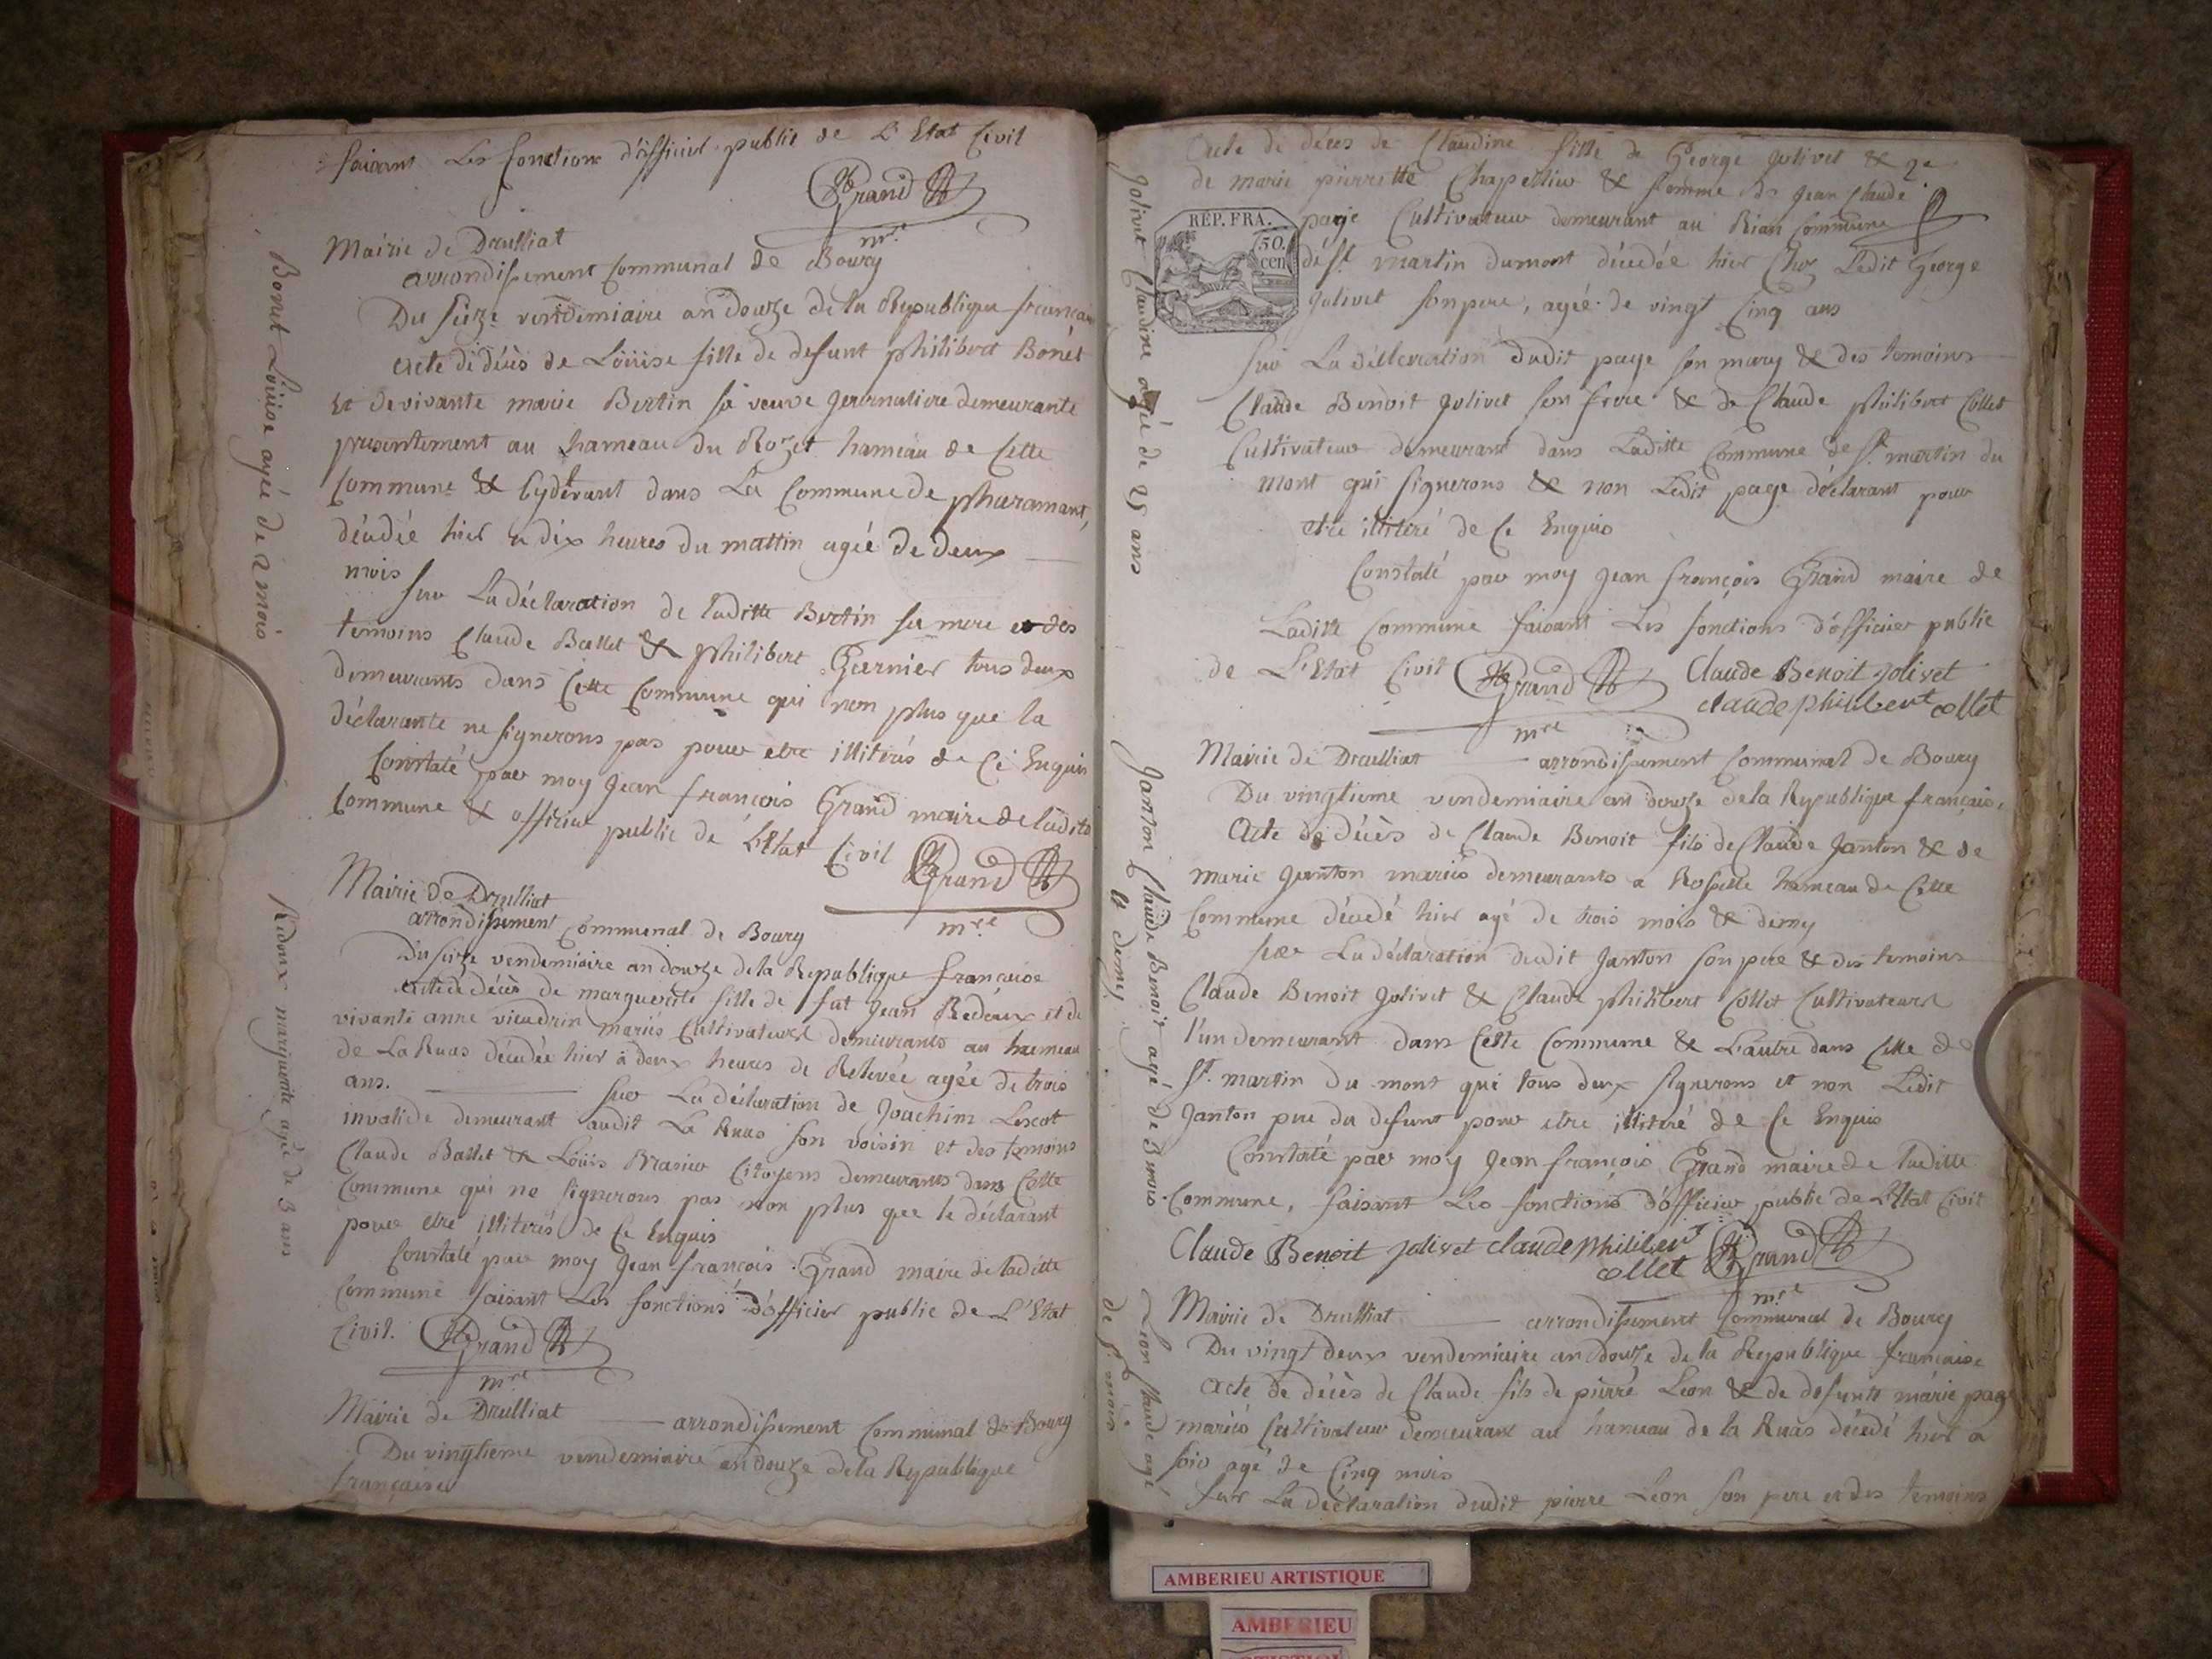 faisant Les fonctions d'officier public de L'Etat Civil
Grand
mre
Mairie de Drulliat
arrondissement Communal de Bourg
Du seize vendemiaire an douze de la Republique francaise
acte de décès de Löuise fille de defunt philibert Bonet
Et de vivante marie Bertin sa veuve journaliere demeurante
presentement au hameau du Rozet hameau de Cette
Commune & Cydevant dans La Commune de pharamant,
décédée hier a dix heures du mattin agée de deux
mois
sur La déclaration de laditte Bertin sa mere et des
temoins Claude Ballet & philibert Garnier tous deux
demeurants dans Cette Commune qui non plus que la
déclarante ne signerons pas pour etre illiterés de Ce Enquis
Constaté par moy Jean françois Grand maire de ladite
Commune & officier public de L'Etat Civil Grand
mre
Bonet Löuise agée de 2 mois
Mairie de Drulliat
arrondissement Communal de Bourg
Du seize vendemiaire an douze de la Republique francaise
acte de décès de marguerite fille de fut Jean Redoux et de
vivante anne vieudrin mariés Cultivateurs demeurants au hameau
de La Ruas décédée hier à deux heures de Relevée agée de trois
ans. sur La déclaration de Joachim Lescot
invalide demeurant audit La Ruas son voisin et des temoins
Claude Ballet & Löuis Brasier Citoyens demeurants dans Cette
Commune qui ne signerons pas non plus que le déclarant
pour etre illiterés de Ce Enquis
Constaté par moy Jean françois Grand maire de laditte
Commune faisant Les fonctions d'officier public de L'Etat
Civil. Grand
mre
Redoux marguerite agée de 3 ans
Mairie de Drulliat arrondissement Communal de Bourg
Du vingtieme vendemiaire an douze de la Republique
française
Acte de décès de Claudine fille de George Jolivet &
de marie pierrette Chapellier & femme de Jean Claude
page Cultivateur demeurant au Rian Commune
de St. martin dumont décedée hier Chez Ledit George
Jolivet son pere, agée de vingt Cinq ans
REP. FRA.
50.
cen
sur La déclaration dudit page son mary & des temoins
Claude Benoit Jolivet son frere & de Claude philibert Collet
Cultivateur demeurant dans Laditte Commune de St. martin du
mont qui signerons & non Ledit page déclarant pour
etre illiteré de Ce Enquis
Constaté par moy Jean françois Grand maire de
Laditte Commune faisant Les fonctions d'officier public
de L'Etat Civil Grand Claude Benoit Jolivet
claude philibert collet
mre
Jolivet Claudine agée de 25 ans
Mairie de Drulliat arrondissement Communal de Bourg
Du vingtieme vendemiaire an douze de la Republique française
Acte de décès de Claude Benoit fils de Claude Janton & de
marie Janton mariés demeurants a Rossette hameau de Cette
Commune décedé hier agé de trois mois & demy
sur La déclaration dudit Janton son pere & des temoins
Claude Benoit Jolivet & Claude philibert Collet Cultivateurs
l'un demeurant dans Cette Commune & L'autre dans Celle de
St. martin du mont qui tous deux signerons et non Ledit
Janton pere du defunt pour etre illiteré de Ce Enquis
Constaté par moy Jean françois Grand maire de laditte
Commune, faisant Les fonctions d'officier public de L'Etat Civil
Claude Benoit Jolivet claude philibert
collet Grand
mre
Janton Claude Benoit agé de 3 mois
et demy
Mairie de Drulliat arrondissement Communal de Bourg
Du vingt deux vendemiaire an douze de la Republique francaise
Acte de décès de Claude fils de pierre Leon & de defunte marie page
mariés Cultivateur demeurant au hameau de la Ruas décedé hier a
soir agé de Cinq mois
sur La déclaration dudit pierre Leon son pere et des temoins
Leon Claude agé
de 5 mois
AMBERIEU ARTISTIQUE
AMBERIEU
ARTISTIQUE